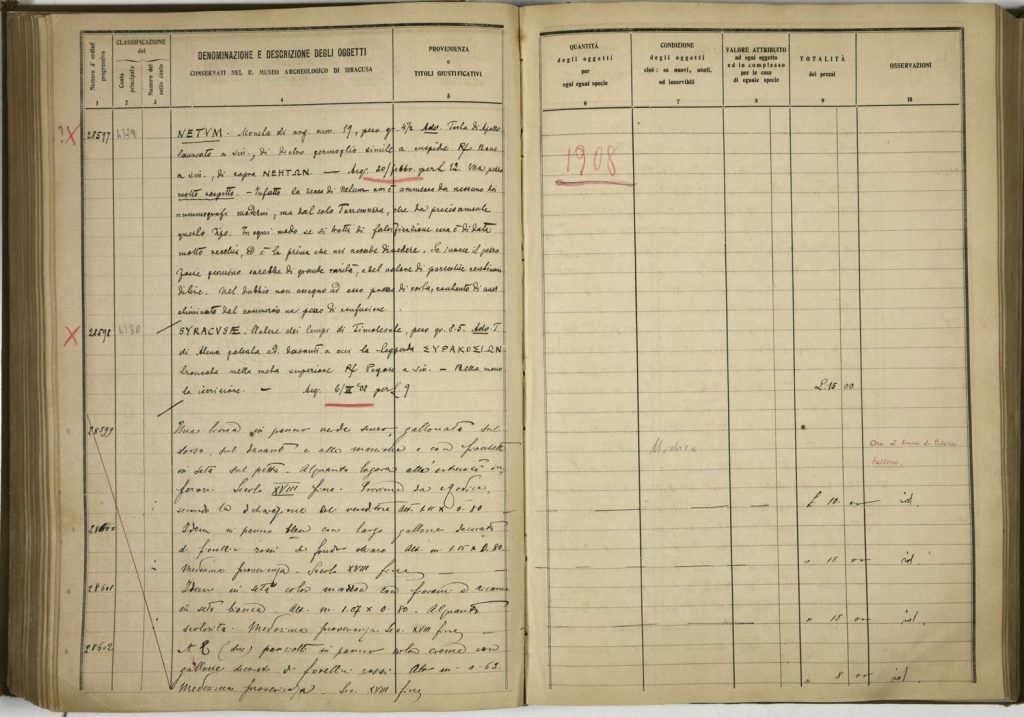 Numero d'ordine progressivo
CLASSIFICAZIONE del
Conto principale
Numero del sotto conto
DENOMINAZIONE E DESCRIZIONE DEGLI OGGETTI
CONSERVATI NEL R. MUSEO ARCHEOLOGICO DI SIRACUSA
PROVENIENZA
e
TITOLI GIUSTIFICATIVI
1 2 3 4 5
? X 28597 NETVM. Moneta di arg. mm. 19, peso gr. 4½ Ads. Testa di Apollo
laureato a sin., di dietro germoglio simile a cuspide R/ Bove
a sin., di sopra ΝΕΗΤΩΝ. — Acq. 20/febbr. per L 12. Ma pezzo
molto sospetto. — Infatto la zecca di Netum non è ammessa da nessuno dei
nummografi moderni, ma dal solo Torremuzza, che da precisamente
questo tipo. In ogni modo se si tratta di falsificazione essa è di data
molto vecchia, ed è la prima che mi accade di vedere. Se invece il pezzo
fosse genuino sarebbe di grande rarità, e del valore di parecchie centinaia
di lire. Nel dubbio non assegno ad esso prezzo di sorta, contento di aver
eliminato dal commercio un pezzo di confusione.
X 28598 SYRACVSÆ. Statere dei tempi di Timoleonte, peso gr. 8.5. Ads. T.
di Atena galeata a d. davanti a cui la leggenda ΣΥΡΑΚΟΣΙΩΝ
troncata nella metà superiore R/ Pegaso a sin. — Bella meno
la iscrizione. — Acq. 6/III °08 per L 9
28599 Una in panno verde scuro, gallonata sul
dorso, sul davanti e alle maniche e con fiocchetti
in seta sul petto. Alquanto logora alle estremità in-
feriori. Secolo XVIII fine. Proviene da Modica,
secondo la dichiarazione del venditore Alt. 1.11 × 0.80
28600 Idem in panno bleu con largo gallone decorato
di fioretti rossi su fondo chiaro Alt. m 1.15 × 0.80
Medesima provenienza. Secolo XVIII fine
28601 Idem in seta color con fiorami a ricamo
in seta bianca. Alt. m. 1.07 × 0.80. Alquanto
scolorita. Medesima provenienza. Sec. XVIII fine
28602 N. 2 (due) panciotti in panno color crema con
gallone decorato di fioretti rossi Alt. m 0.63.
Medesima provenienza. Sec. XVIII fine
QUANTITÀ
degli oggetti
per
ogni egual specie
CONDIZIONE
degli oggetti
cioè: se nuovi, usati,
od inservibili
VALORE ATTRIBUITO
ad ogni oggetto
ed in complesso
per le cose
di eguale specie
TOTALITÀ
dei prezzi
OSSERVAZIONI
6 7 8 9 10
1908
L. 15 00
Modica
Ora al Museo di Palazzo
Bellomo.
L 10 00 id.
" 15 00 id
" 15 00 id.
" 8 00 id.